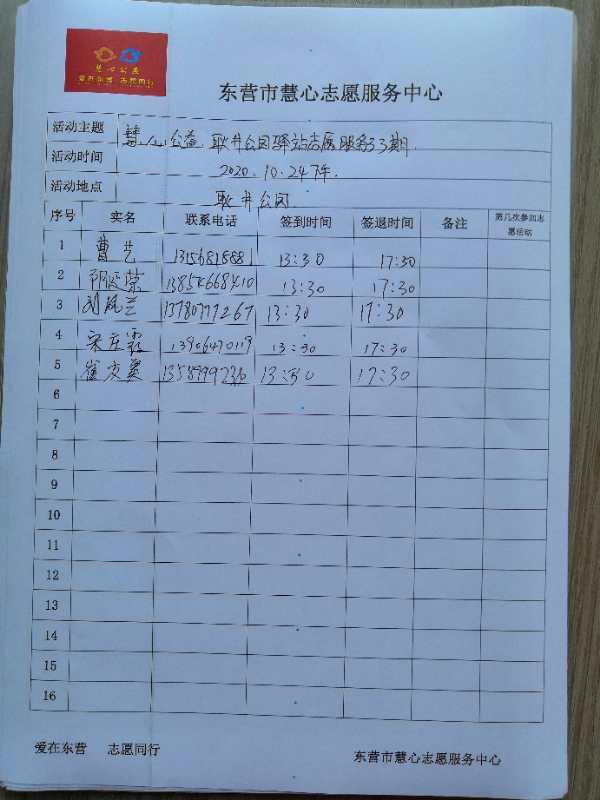 慧心公益
爱在东营 志愿同行
东营市慧心志愿服务中心
活动主题 慧心公益 耿井公园驿站志愿服务33期
活动时间 2020.10.24下午
活动地点 耿井公园
序号 实名 联系电话 签到时间 签退时间 备注 第几次参加志
愿活动
1 曹艺 13:30 17:30
2 13854668410 13:30 17:30
3 刘凤兰 13780777267 13:30 17:30
4 宋庄霞 13906470119 13:30 17:30
5 崔 13:30 17:30
6
7
8
9
10
11
12
13
14
15
16
爱在东营 志愿同行 东营市慧心志愿服务中心